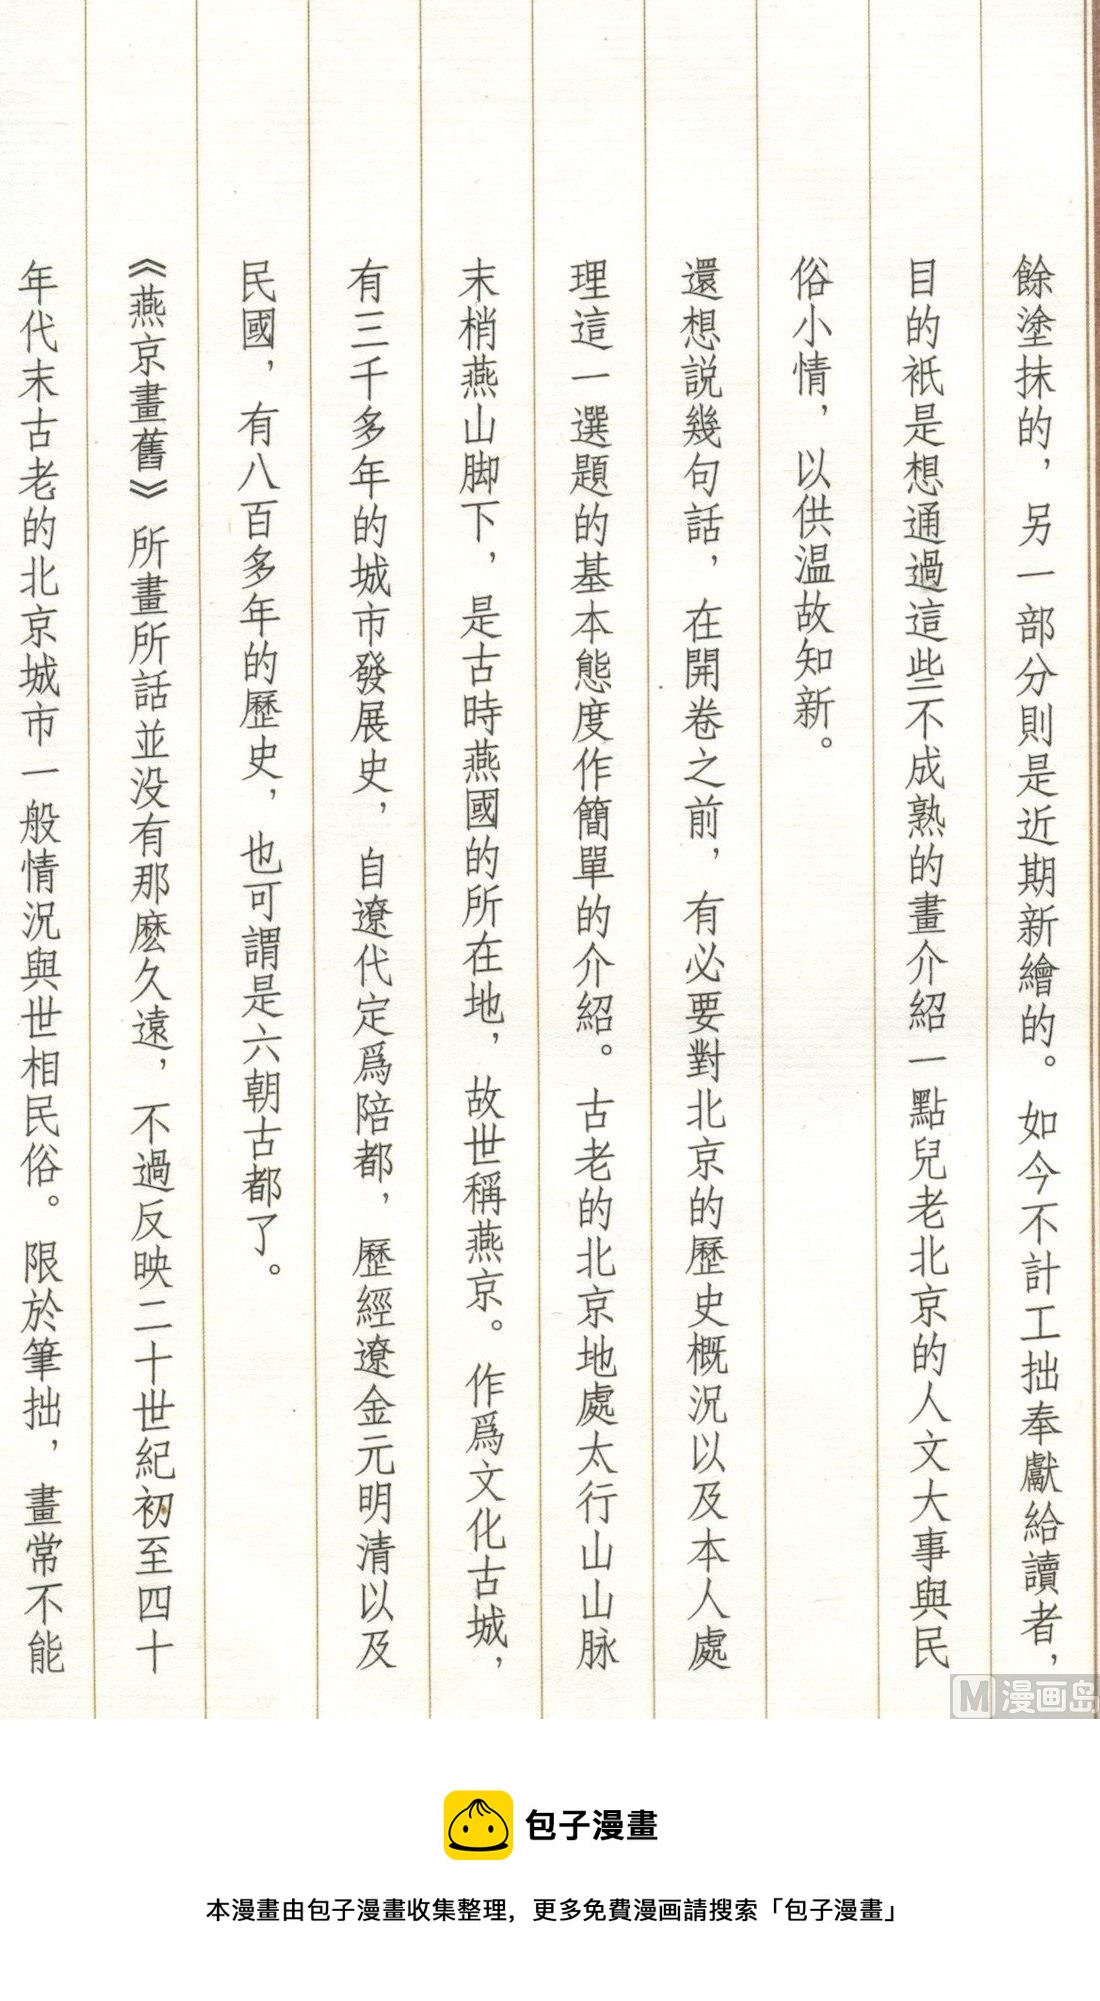 餘塗抹的，另一部分則是近期新繪的。如今不計工拙奉獻給讀者，
目的衹是想通過這些不成熟的畫介紹一點兒老北京的人文大事與民
俗小情，以供温故知新。
還想説幾句話，在開卷之前，有必要對北京的歷史概況以及本人處
理這一選題的基本態度作簡單的介紹。古老的北京地處太行山山脉
末梢燕山脚下，是古時燕國的所在地，故世稱燕京。作爲文化古城，
有三千多年的城市發展史，自遼代定爲陪都，歷經遼金元明清以及
民國，有八百多年的歷史，也可謂是六朝古都了。
《燕京畫舊》所畫所話並没有那麽久遠，不過反映二十世紀初至四十
年代末古老的北京城市一般情況與世相民俗。限於筆拙，畫常不能
M漫画岛
包子漫畫
本漫畫由包子漫畫收集整理，更多免費漫画請搜索「包子漫畫」